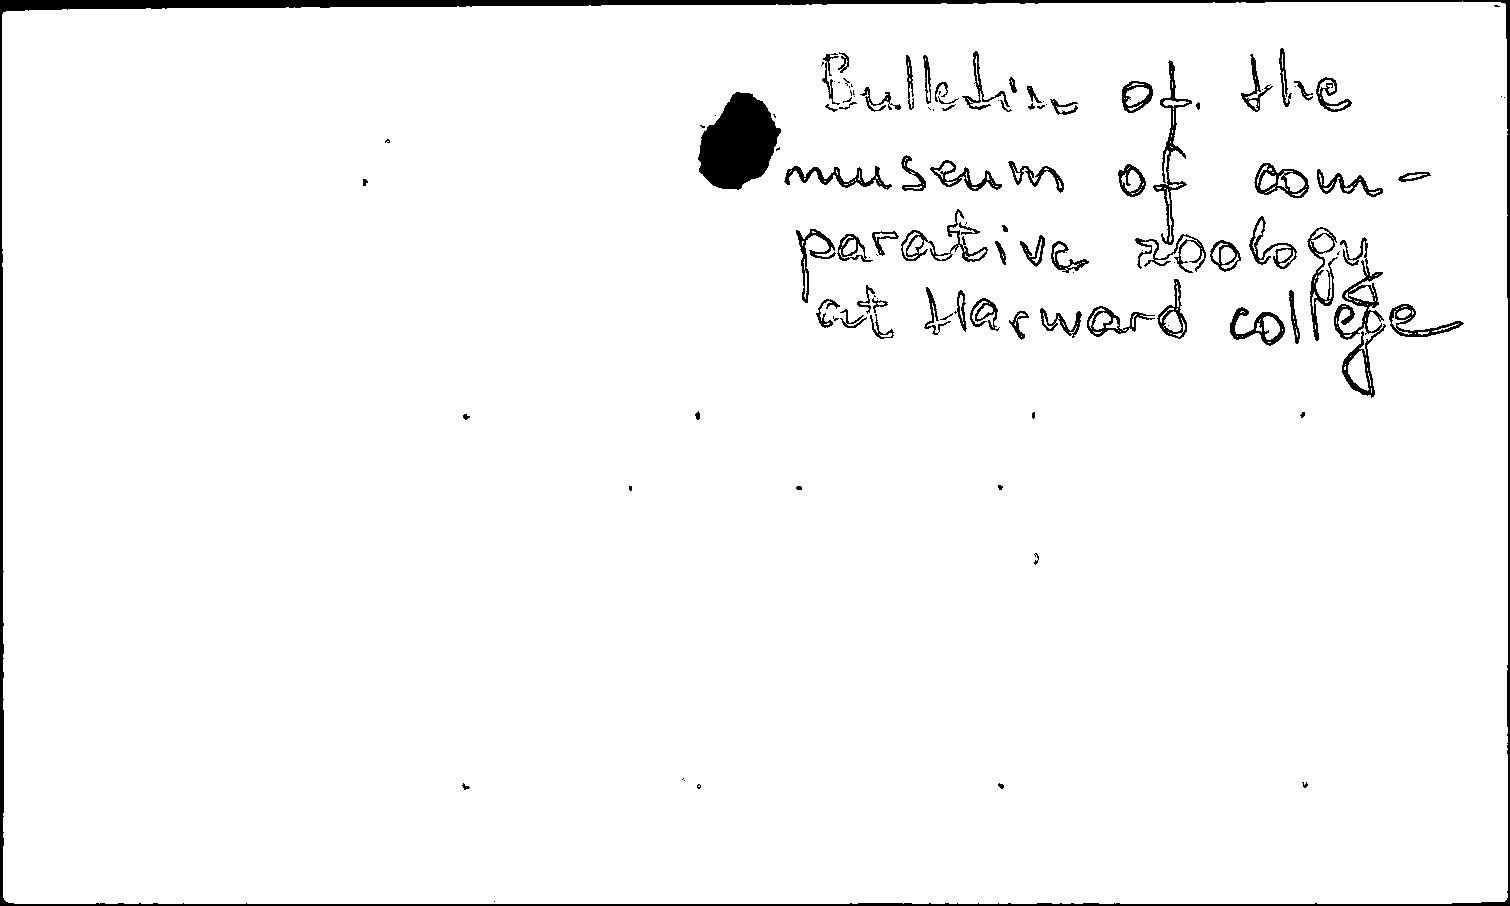 Bulletin of the
museum of com-
parative zoology
at Harward college